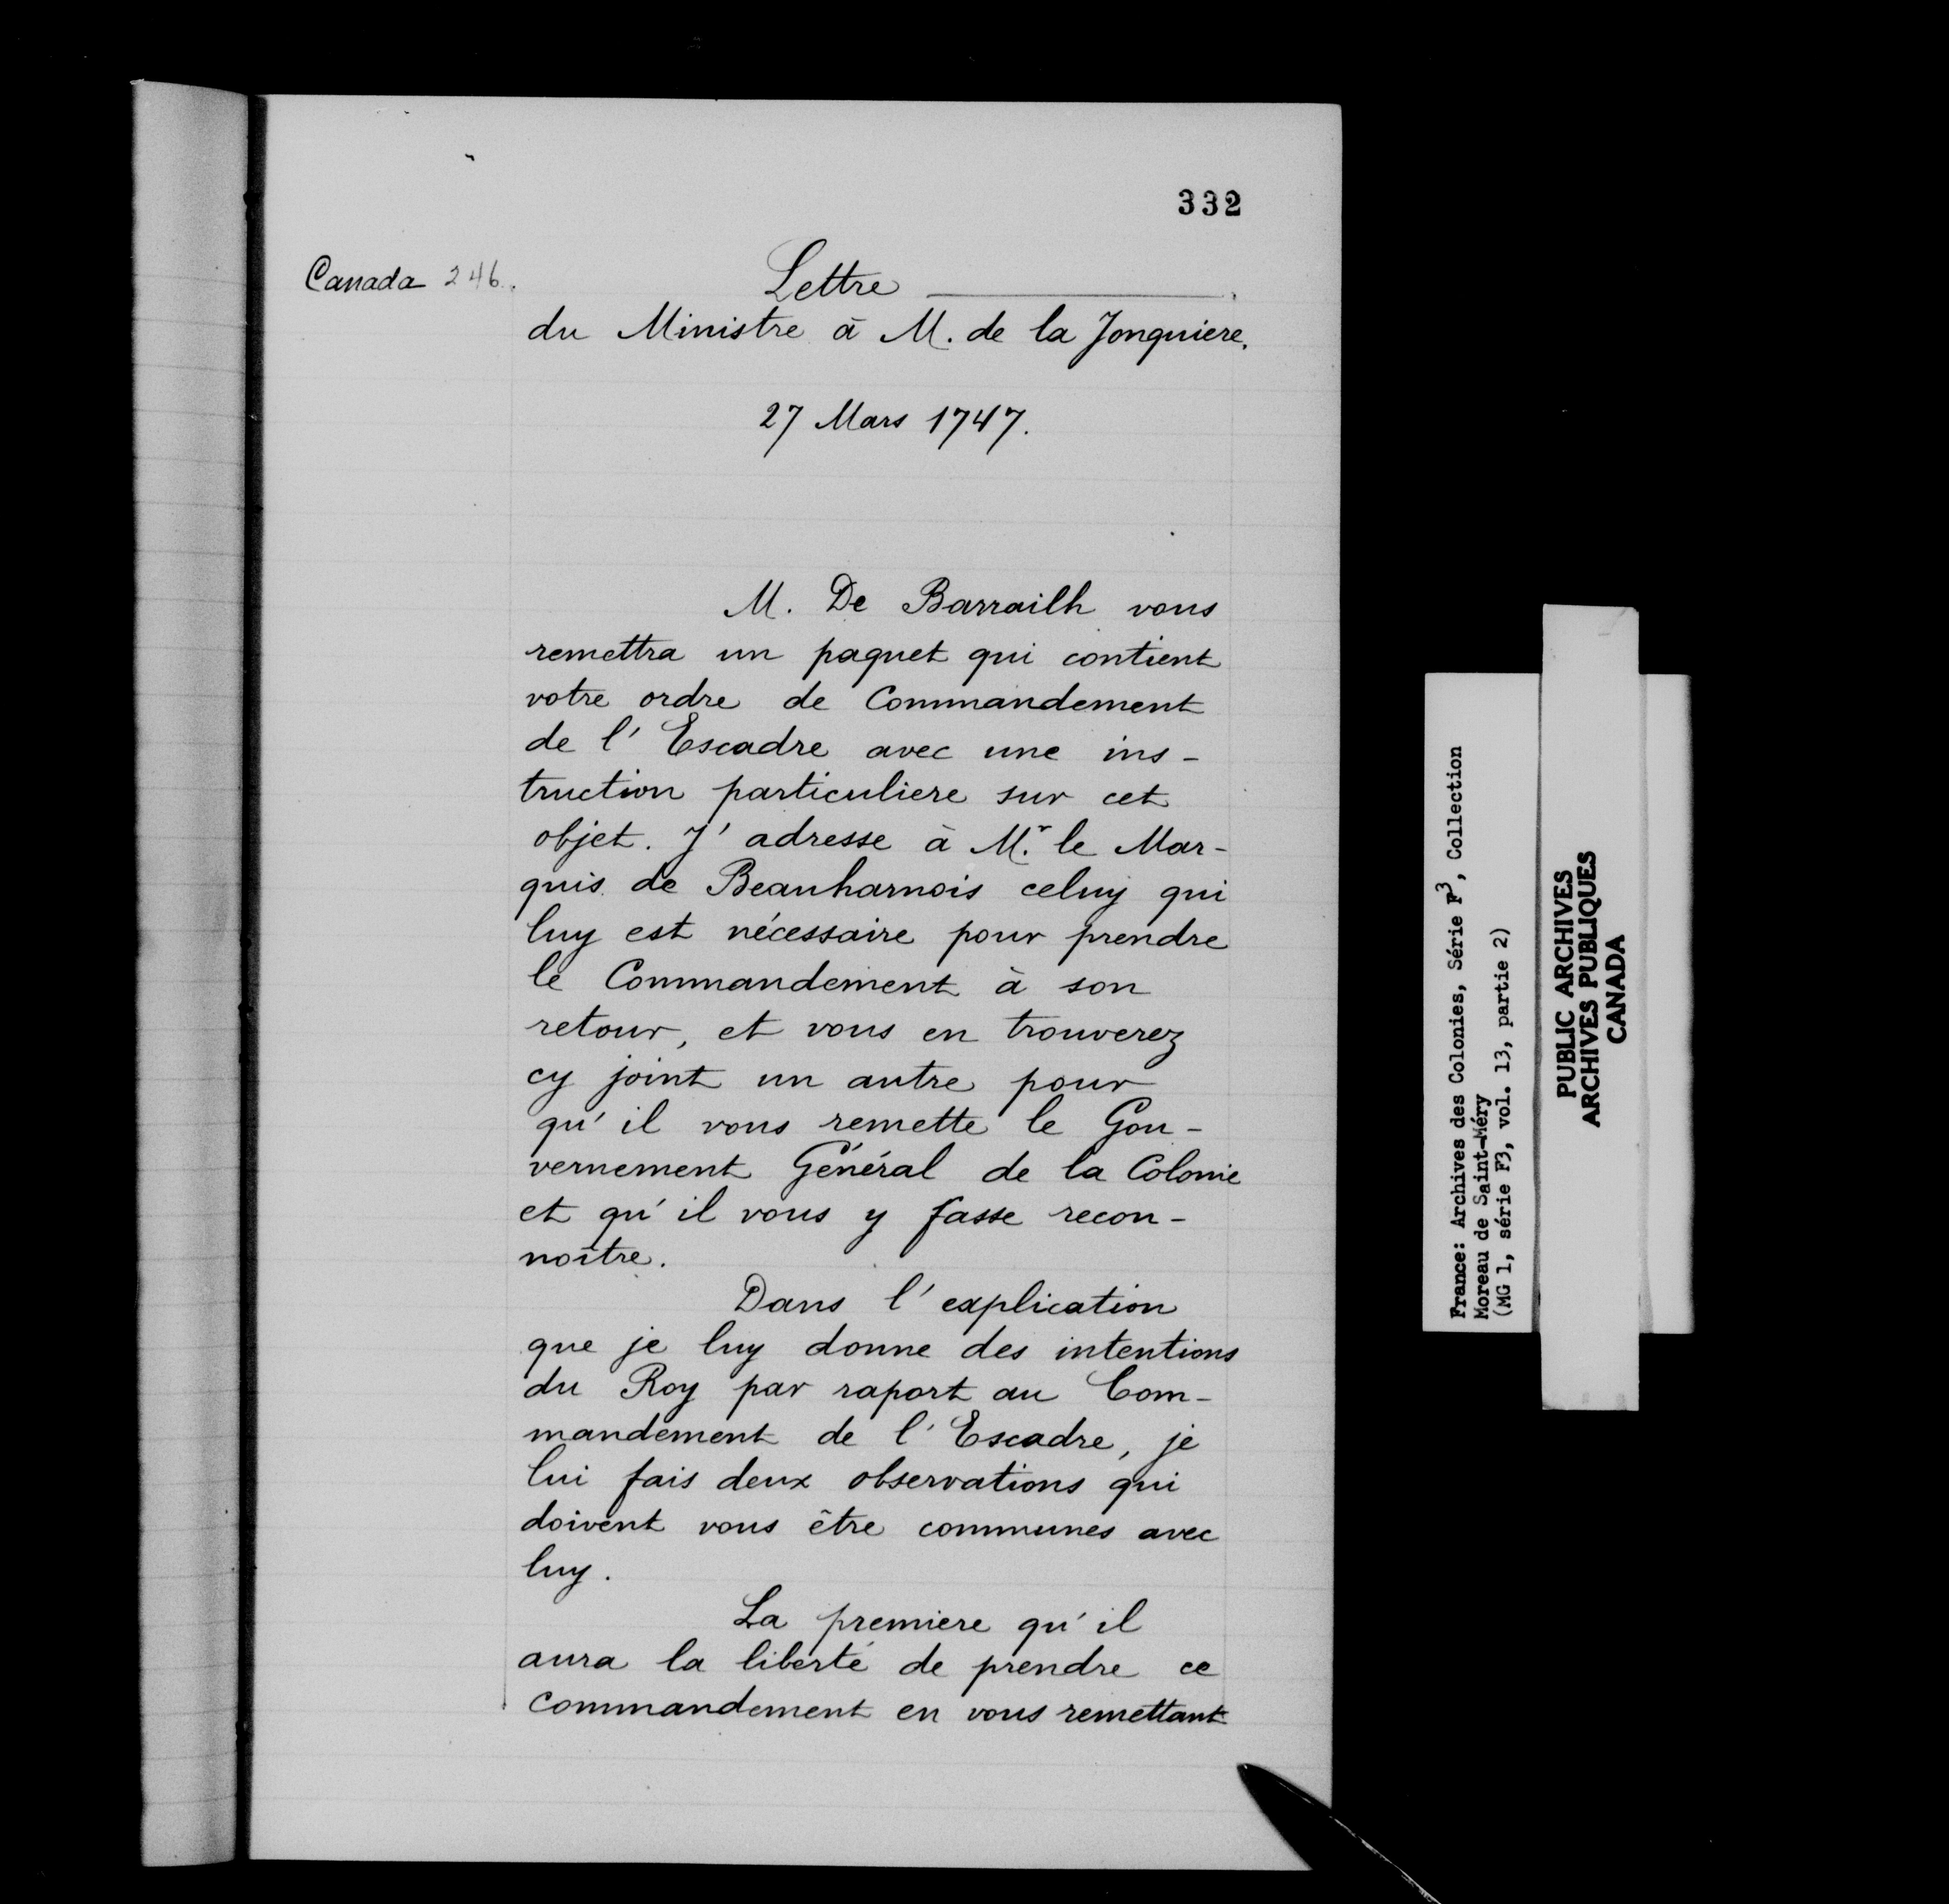 332
Canada 246.
Lettre
du Ministre à M. de la Jonquiere.
27 Mars 1747.
M. De Barrailh vous
remettra un paquet qui contient
votre ordre de Commandement
de l'Escadre avec une ins-
truction particuliere sur cet
objet. J'adresse à Mr. le Mar-
quis de Beauharnois celuy qui
luy est nécessaire pour prendre
le Commandement à son
retour, et vous en trouverez
cy joint un autre pour
qu'il vous remette le Gou-
vernement Général de la Colonie
et qu'il vous y fasse recon-
noître.
Dans l'explication
que je luy donne des intentions
du Roy par raport au Com-
mandement de l'Escadre, je
lui fais deux observations qui
doivent vous être communes avec
luy.
La premiere qu'il
aura la liberté de prendre ce
commandement en vous remettant
France: Archives des Colonies, Série F3, Collection
Moreau de Saint-Méry
(MG 1, série F3, vol. 13, partie 2)
PUBLIC ARCHIVES
ARCHIVES PUBLIQUES
CANADA